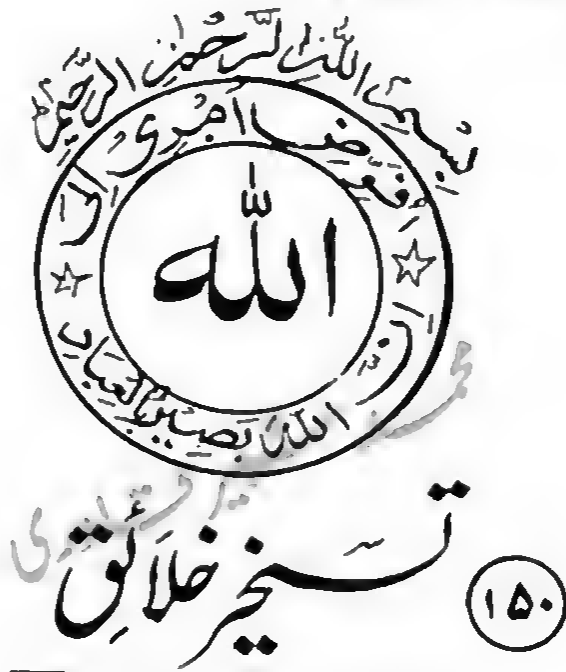 بِسْمِ اللهِ الرَّحْمٰنِ الرَّحِيْمِ
اُفَوِّضُ اَمْرِى اِلَى
الله
اِنَّ اللهَ بَصِيْرٌ بِالْعِبَادِ
تسخیر خلائق
۱۵۰